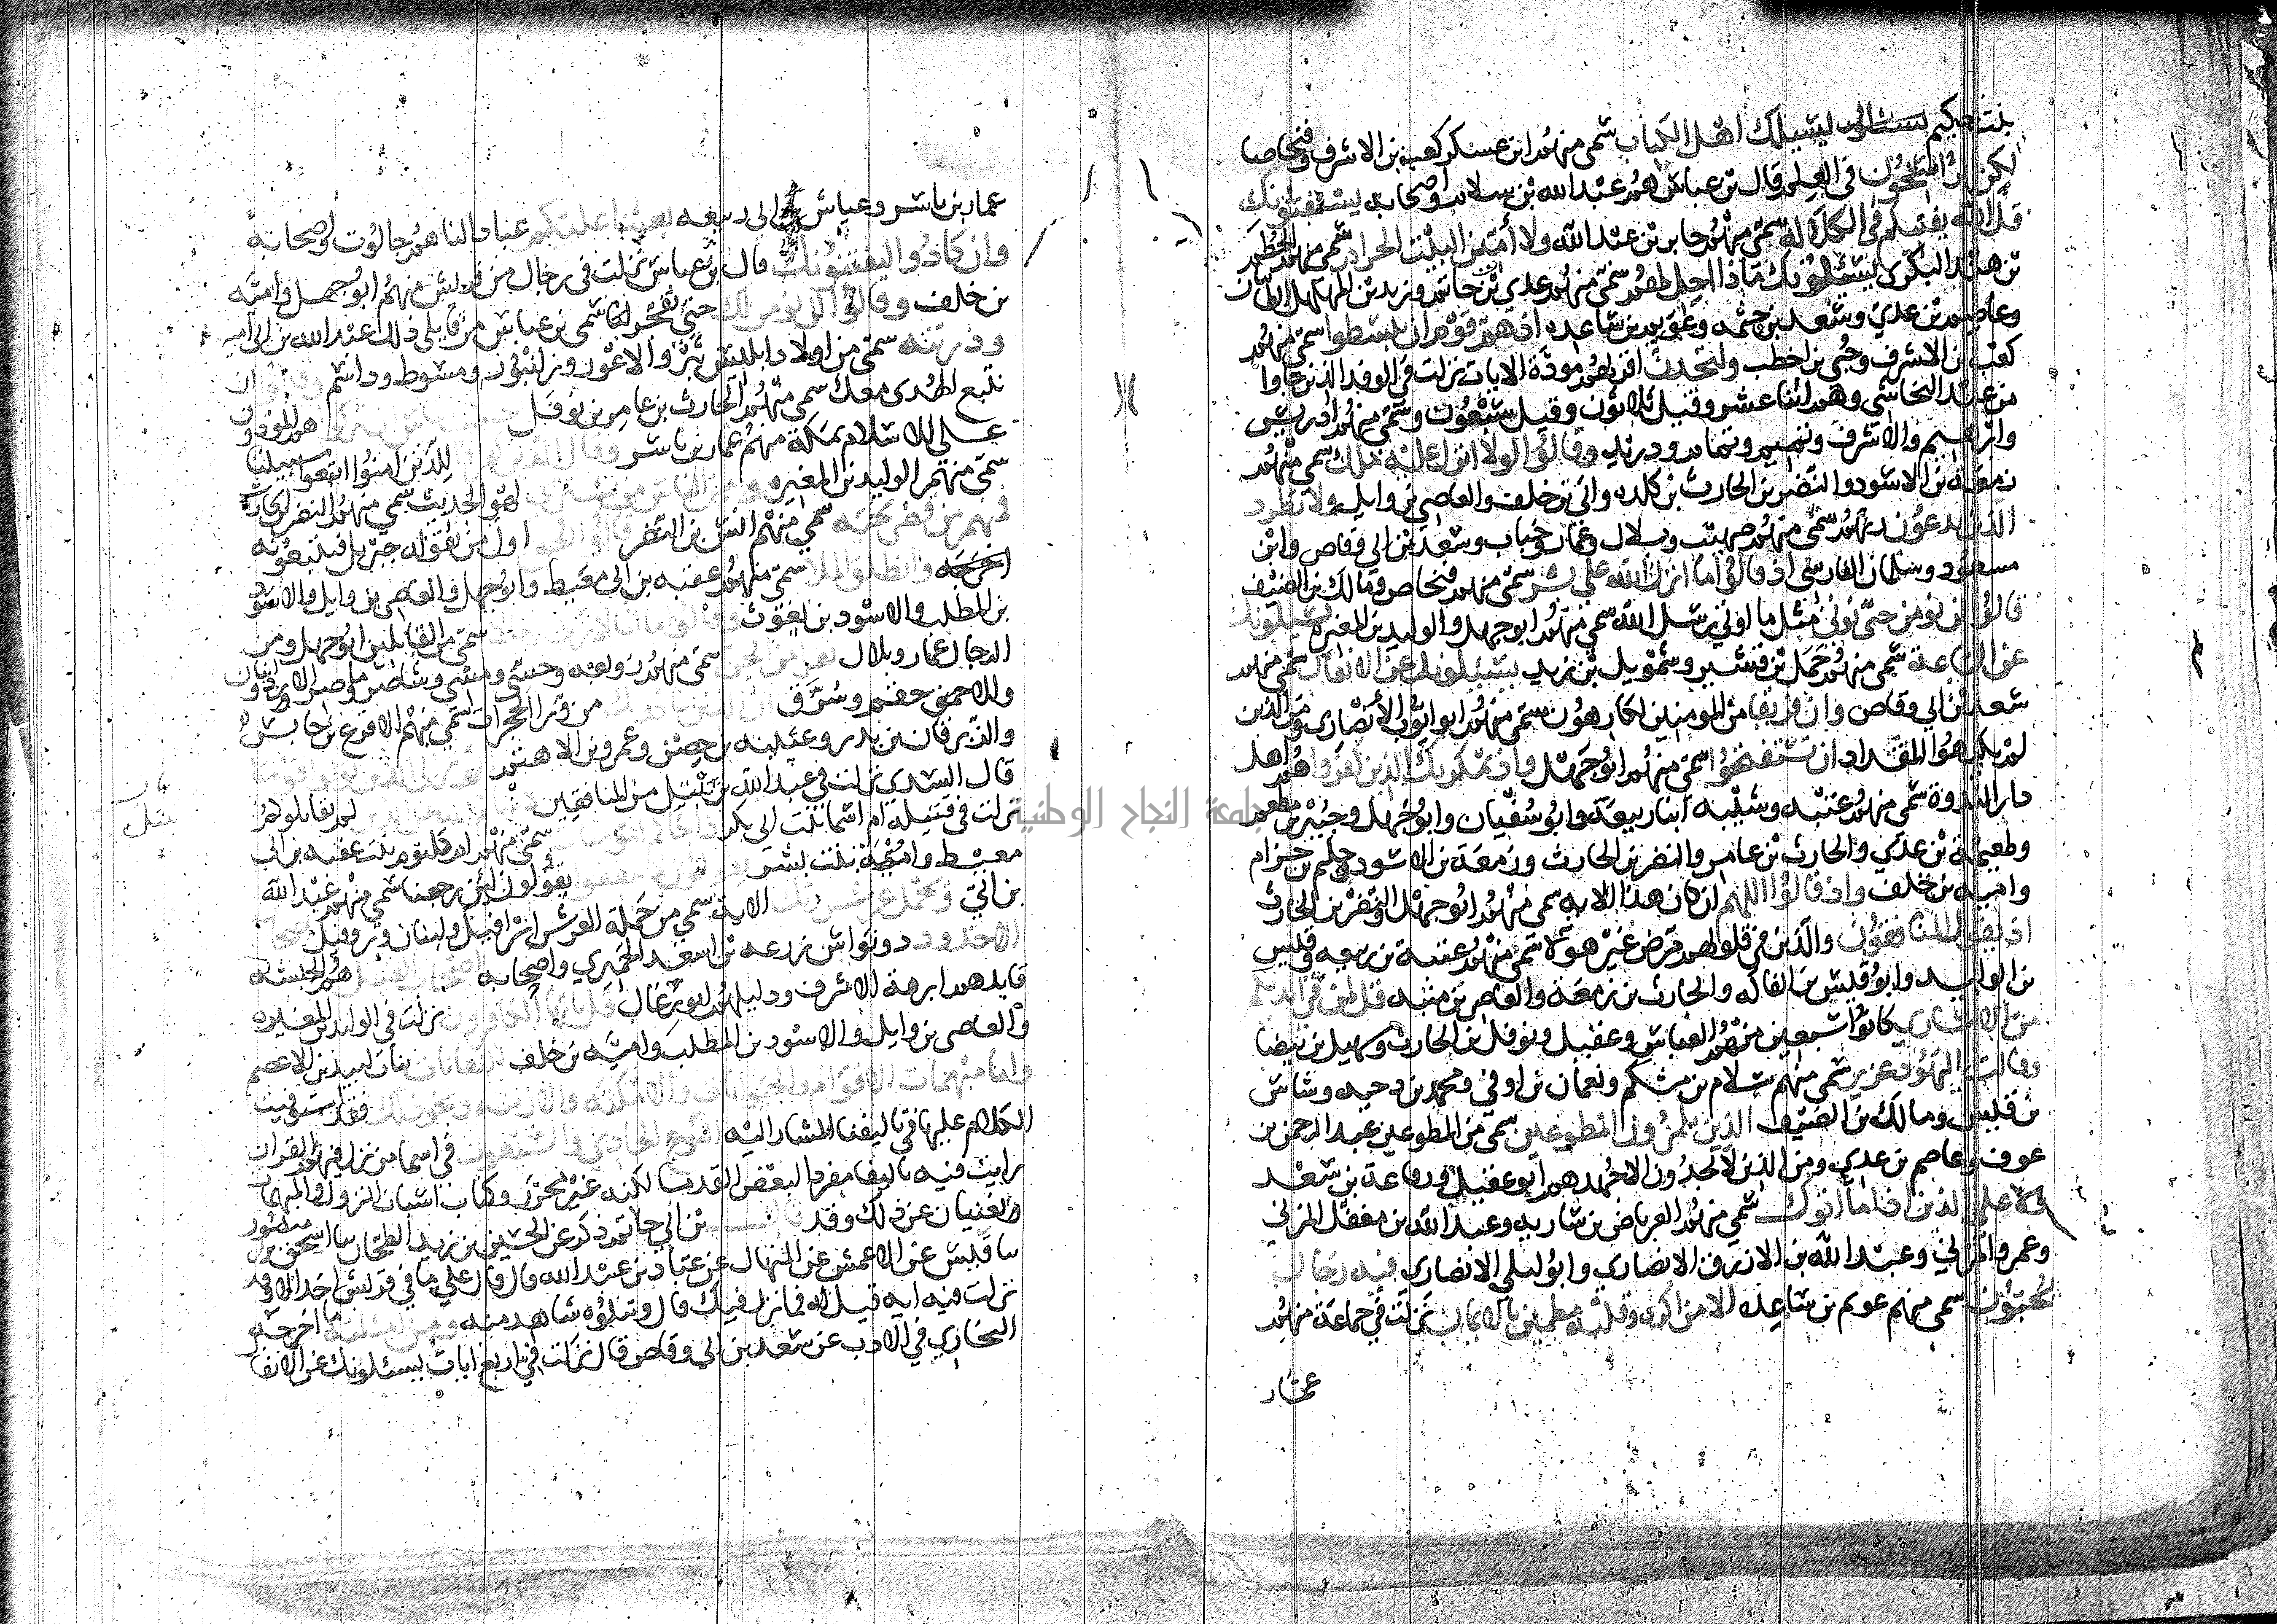 بنت حكيم يسئلك اهل الكتاب سمى منهم ابن عسكر كعب بن الاشرف وفنحاصا
لكن الراسخون في العلم قال بن عباس هم عبد الله بن سلام واصحابه يستفتونك
قل الله يفتيكم في الكلالة سمي منهم جابر بن عبد الله ولا امين البيت الحرام سمى منهم الحطم
بن هند البكري يسئلونك ماذا احل لهم سمى منهم عدي بن حاتم وزيد بن المهلهل الطائيان
وعاصم بن عدي وسعد بن خيثمه وعويمر بن ساعده اذ هم قوم ان يبسطوا سمى منهم
كعب بن الاشرف وحيي بن اخطب ولتجدن اقربهم مودة الايات نزلت في الوفد الذين جاوا
من عند النجاشي وهم اثنا عشر وقيل ثلاثون وقيل سبعون وسمي منهم ادريس
وابرهيم والاشرف وتميم وتمام ودريد وقالوا لولا انزل عليه ملك سمى منهم
زمعة بن الاسود والنضر بن الحارث بن كلده وابي بن خلف والعاصي بن وايل ولا تطرد
الذين يدعون ربهم سمى منهم صهيب وبلال وعمار وخباب وسعد بن ابي وقاص وابن
مسعود وسلمان الفارسي اذ قالوا ما انزل الله على بشر سمى منهم فنحاص ومالك بن الضيف
قالوا لن نومن حتى نوتى مثل ما اوتي رسل الله سمي منهم ابو جهل والوليد بن المغيره يسئلونك
عن الساعة سمى منهم حمل بن قشير وشمويل بن زيد يسئلونك عن الانفال سمى منهم
سعد بن ابي وقاص وان فريقا من المومنين لكارهون سمى منهم ابو ايوب الانصاري ومن الذين
لم يكرهوا المقداد ان تستفتحوا سمى منهم ابو جهل واذ يمكر بك الذين كفروا هم اهل
دار الندوة سمى منهم عتبه وشيبه ابنا ربيعة وابو سفيان وابو جهل وجبير بن مطعم
وطعيمة بن عدي والحارث بن عامر والنضر بن الحارث وزمعة بن الاسود وحكيم بن حزام
واميه بن خلف واذ قالوا اللهم ان كان هذا الايه سمى منهم ابو جهل والنضر بن الحارث
اذ يقول المنافقون والذين في قلوبهم مرض غر هولاء سمى منهم عتبة بن ربيعه وقيس
بن الوليد وابو قيس بن الفاكه والحارث بن زمعة والعاص بن منبه قل لمن في ايديكم
من الاسارى كانوا سبعين منهم العباس وعقيل ونوفل بن الحارث وسهيل بن بيضا
وقالت اليهود عزير سمى منهم سلام بن مشكم ونعمان بن اوفى ومحمد بن دحيه وشاس
بن قيس ومالك بن الضيف الذين يلمزون المطوعين سمى من المطوعين عبد الرحمن بن
عوف وعاصم بن عدي ومن الذين لا يجدون الا جهدهم ابو عقيل ورفاعة بن سعد
ولا على الذين اذا ما اتوك سمي منهم العرباض بن ساريه وعبد الله بن مغفل المزني
وعمرو المزني وعبد الله بن الازرق الانصاري وابو ليلى الانصاري فيه رجال
يحبون سمى منهم عويم بن ساعده الا من اكره وقلبه مطمين بالايمان نزلت في جماعة منهم
عمار
عمار بن ياسر وعياش بن ابي ربيعه بعثنا عليكم عبادا لنا هم جالوت واصحابه
وان كادوا ليفتنونك قال بن عباس نزلت في رجال من قريش منهم ابو جهل واميه
بن خلف وقالوا لن نومن لك حتى تفجر لنا سمى بن عباس من قايلي ذلك عبد الله بن ابي اميه
وذريته سمى من اولاد ابليس ثبر والاعور وزلنبور ومسوط وداسم وقالوا ان
نتبع الهدى معك سمى منهم الحارث بن عامر بن نوفل
على الاسلام بمكة منهم عمار بن ياسر وقال الذين للذين امنوا اتبعوا سبيلنا
سمى منهم الوليد بن المغيره ومن الناس من يشتري لهو الحديث سمي منهم النضر بن الحارث
فمنهم من قضى نحبه سمي منهم انس بن النضر قالوا الحق اول من يقوله جبريل فيتبعونه
وانطلق الملا سمى منهم عقبه بن ابي معيط وابو جهل والعاصي بن وايل والاسود
بن المطلب والاسود بن يغوث وقالوا ما لنا لا نرى سمى من القايلين ابو جهل ومن
الرجال عمار وبلال نفرا من الجن سمى منهم زوبعه وحسى ومسى وشاصر وماصر
والاحقم وسرق ان الذين ينادونك من ورا الحجرات سمى منهم الاقرع بن حابس
والزبرقان بن بدر وعيينه بن حصن وعمرو بن الاهتم
قال السدي نزلت في عبد الله بن نبتل من المنافقين لم يقاتلوكم
نزلت في قتيلة ام اسما بنت ابي بكر سمى منهم ام كلثوم بنت عقبه بن ابي
معيط واميمه بنت بشر يقولون لئن رجعنا سمي منهم عبد الله
بن ابي ويحمل عرش ربك الايه سمي من حملة العرش اسرافيل ولبنان وروفيل
الاخدود دونواس زرعه بن اسعد الحميري واصحابه اصحاب الفيل هم الحبشه
قايدهم ابرهة الاشرف ودليلهم ابو رغال قل يا ايها الكافرون نزلت في الوليد بن المغيره
والعاصي بن وايل والاسود بن المطلب واميه بن خلف النفاثات بنات لبيد بن الاعصم
واما مبهمات الاقوام والحيوانات والامكنه والازمنه ونحو ذلك فقد استوفيت
الكلام عليها في تاليفنا المشار اليه النوع الحادي والسبعون في اسما من نزل فيهم القران
رايت فيه تاليفا مفردا لبعض القدما لكنه غير محرر وكتاب اسباب النزول والمبهمات
يغنيان عن ذلك وقد قال بن ابي حاتم ذكر عن الحسين بن زيد الطحان سا اسحق بن منصور
سا قيس عن الاعمش عن المنهال عن عباد بن عبد الله قال قال علي ما في قريش احد الا وقد
نزلت فيه ايه قيل له فما نزل فيك قال ويتلوه شاهد منه ومن امثلته ما اخرجه
البخاري في الادب عن سعد بن ابي وقاص قال نزلت في اربع ايات يسئلونك عن الانفال
جامعة النجاح الوطنية